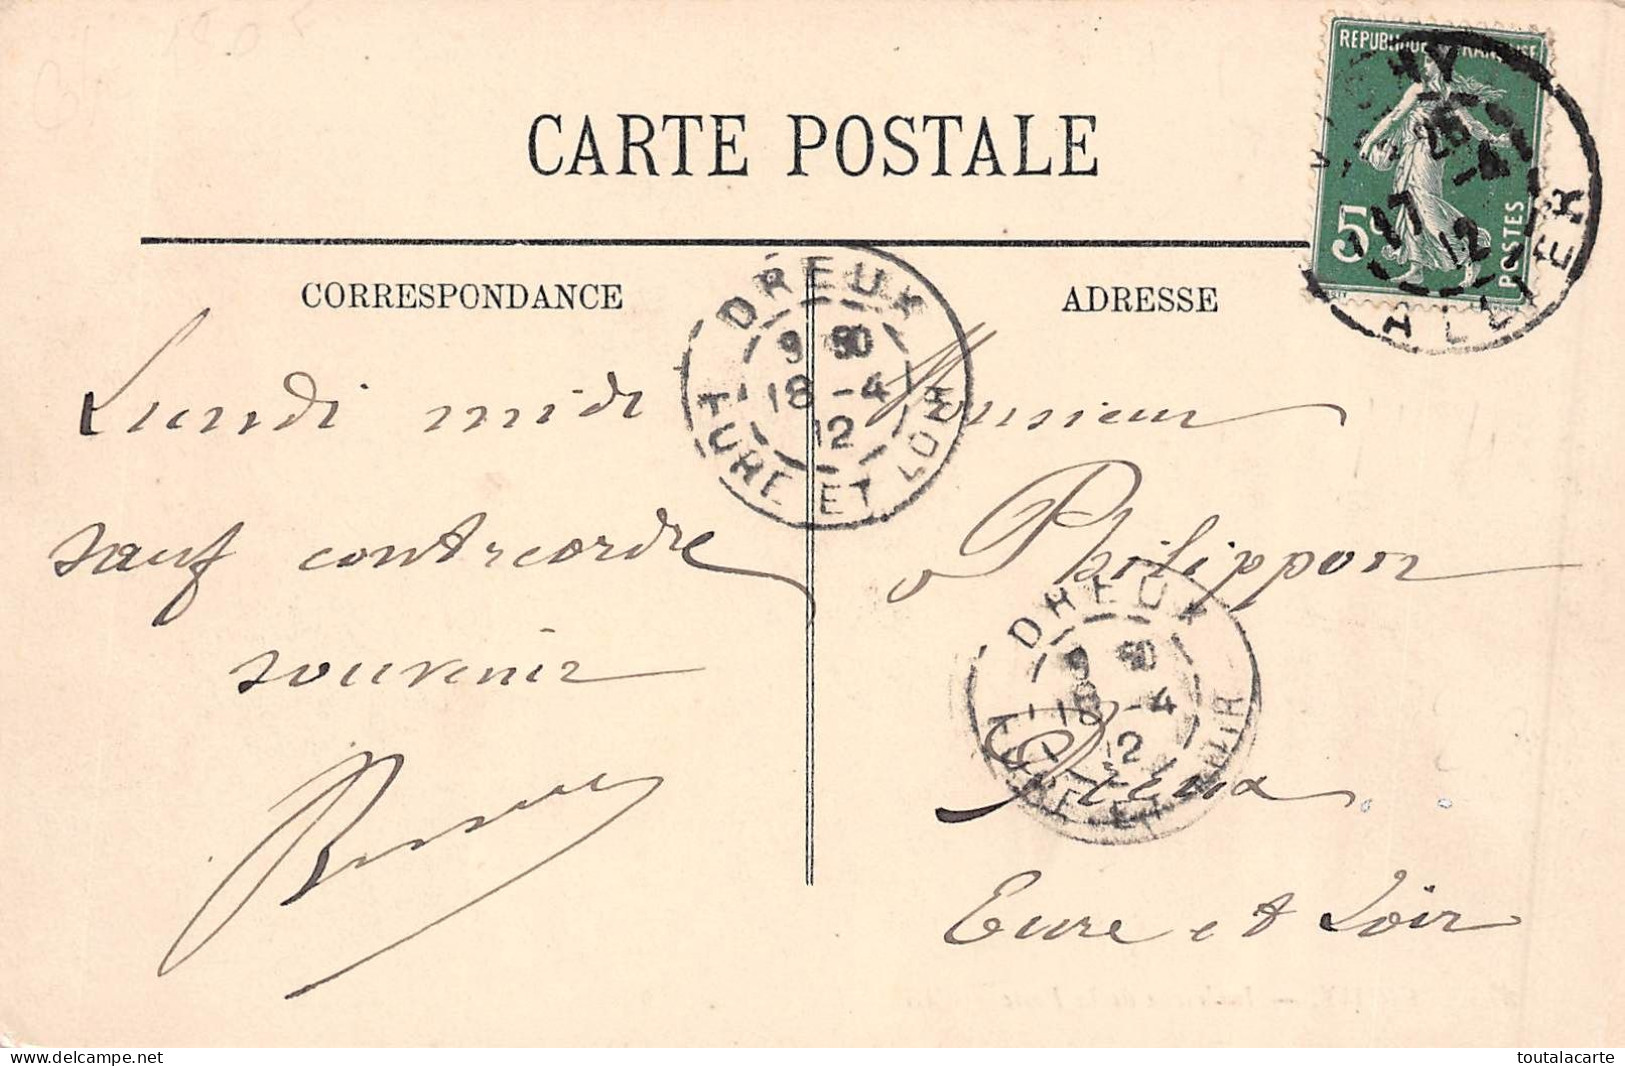 CARTE POSTALE
REPUBLIQUE FRANÇAISE
5c
POSTES
VICHY
25
17 -4
12
ALLIER
CORRESPONDANCE
ADRESSE
DREUX
9 50
18 -4
12
EURE ET LOIR
Lundi midi
sauf contreordre
souvenir
Monsieur
Philippon
DREUX
9 50
18 -4
12
EURE ET LOIR
Dreux
Eure et Loir
delcampe.net
toutalacarte